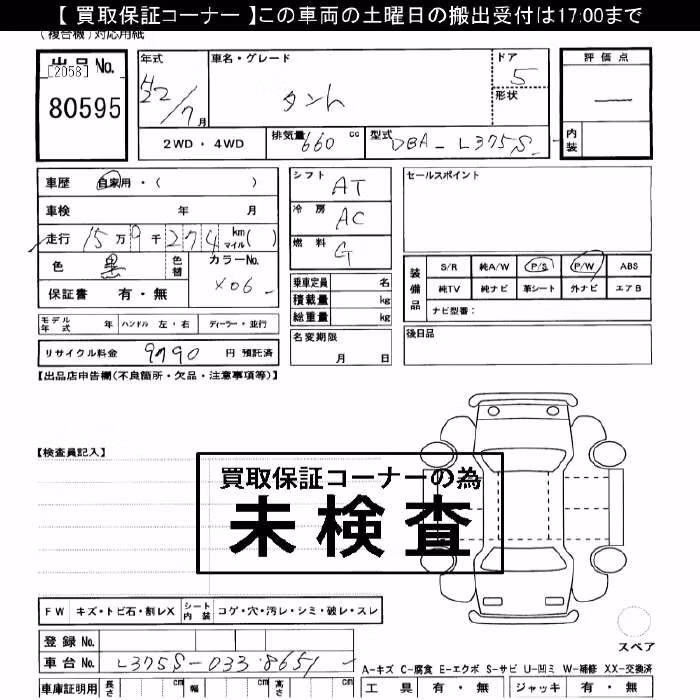 【 買取保証コーナー 】この車両の土曜日の搬出受付は17:00まで
(複合機)対応用紙
出品No.
[2058]
80595
年式
H22/7月
車名・グレード
タント
ドア
5
形状
評価点
—
内装
2WD・4WD
排気量 660 cc
型式 DBA-L375S
車歴 自家用・( )
車検 年 月
走行 15万9千274 km マイル( )
色 黒 色替 カラーNo. X06
保証書 有・無
シフト AT
冷房 AC
燃料 G
乗車定員 名
積載量 kg
総重量 kg
名変期限
月 日
セールスポイント
装備品
S/R 純A/W P/S P/W ABS
純TV 純ナビ 革シート 外ナビ エアB
ナビ型番:
後日品
モデル年式 年 ハンドル 左・右 ディーラー・並行
リサイクル料金 9790 円 預託済
【出品店申告欄(不良箇所・欠品・注意事項等)】
【検査員記入】
買取保証コーナーの為
未検査
FW キズ・トビ石・割レX シート内装 コゲ・穴・汚レ・シミ・破レ・スレ
スペア
登録No.
車台No. L375S-0338651
A-キズ C-腐食 E-エクボ S-サビ U-凹ミ W-補修 XX-交換済
車庫証明用 長さ cm 幅 cm 高さ cm
工具 有・無 ジャッキ 有・無